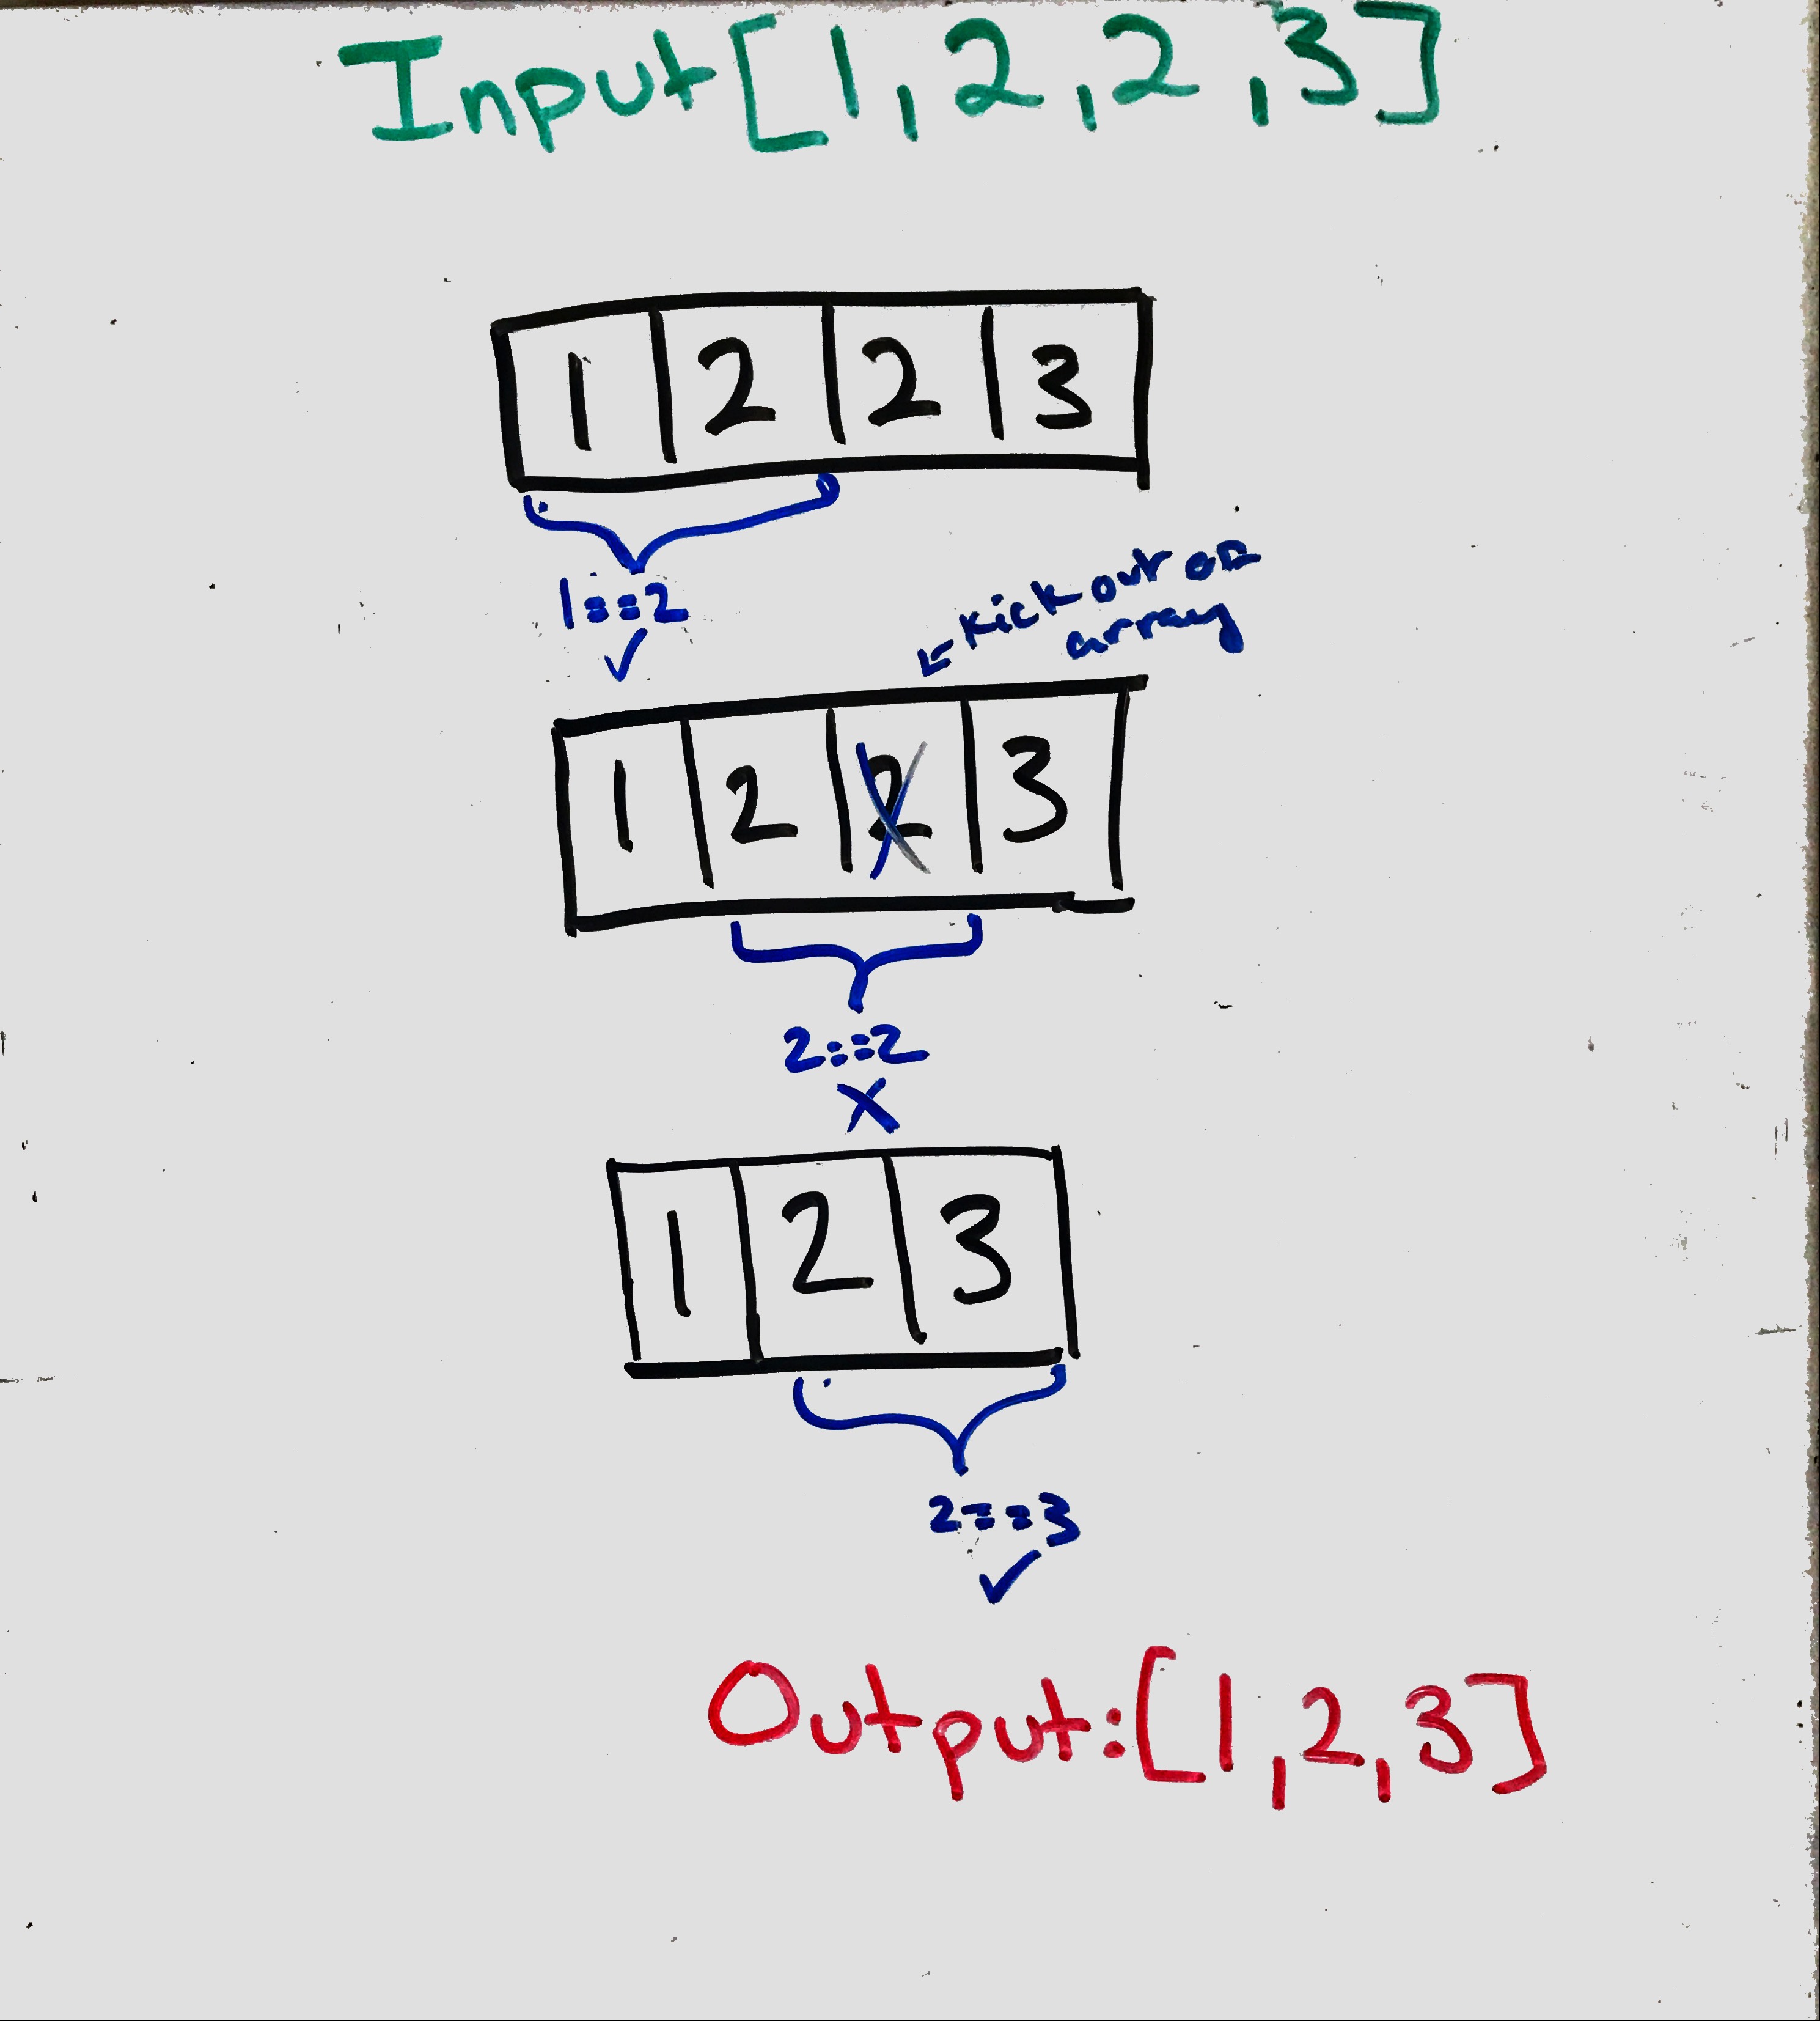 Input[1,2,2,3]
1 2 2 3
1==2
✓
kick out of
array
1 2 2 3
2==2
X
1 2 3
2==3
✓
Output:[1,2,3]